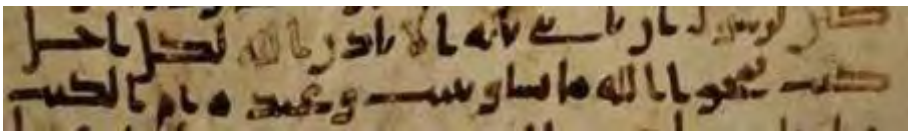 كان لرسول ان ياتي بايه الا باذن الله لكل اجل
كتب يمحوا الله ما يشا ويثبت وعنده ام الكتب